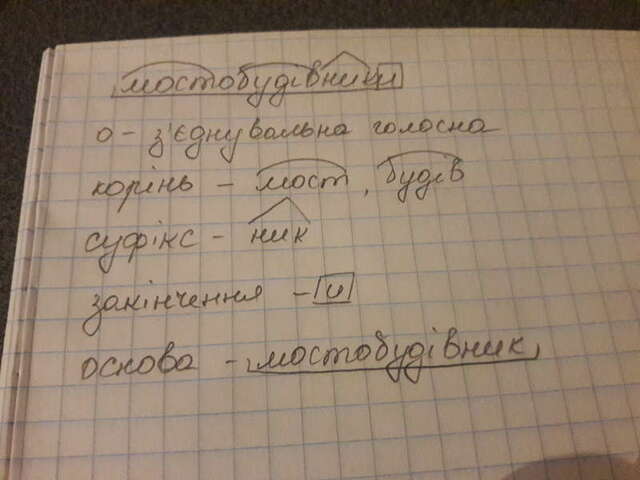 мостобудівники
о - з'єднувальна голосна
корінь - мост, будів
суфікс - ник
закінчення - и
основа - мостобудівник